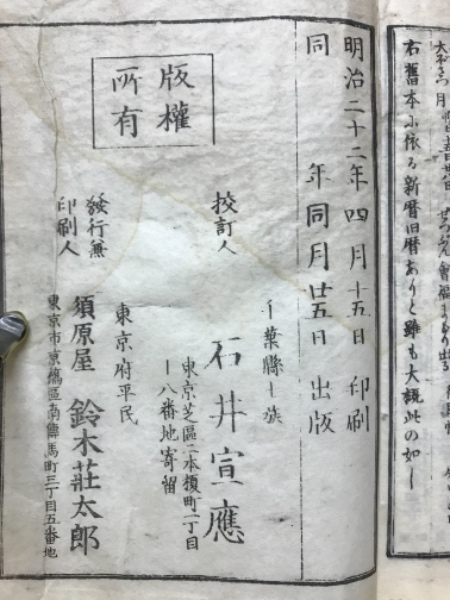 右舊本ニ依る新暦旧暦ありと雖も大概此の如し
明治二十二年四月十五日 印刷
同 年同月廿五日 出版
版權
所有
校訂人
千葉縣士族
石井宣應
東京芝區二本榎町一丁目
十八番地寄留
發行兼
印刷人
東京府平民
須原屋 鈴木荘太郎
東京市京橋區南傳馬町三丁目五番地